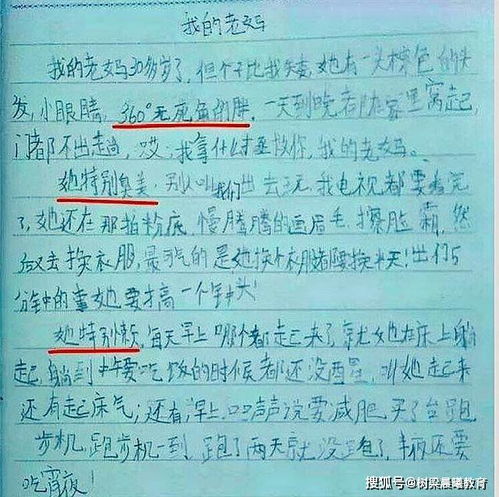 我的老妈
我的老妈30多岁了,但个子比我矮,她有一头棕色的头
发,小眼睛,360°无死角的胖,一天到晚都在家里窝起,
门都不出走尚,哎,我拿什么拯救你,我的老妈。
她特别臭美,别人叫我们出去玩,我电视都要看完
了,她还在那拍粉底,慢腾腾的画眉毛,擦脸霜,然
后又去换衣服,最气的是她换个衣服都要挽半天!出们5
分钟的事她要才高一个钟头!
她特别懒,每天早上哪个都起来了,就她在床上躺
起,躺到中午要吃饭的时候都还没醒,叫她起来
还有起床气,还有早上口口声声说要减肥,买了台跑
步机,跑步机一到,跑了两天就没跑了,半夜还要
吃宵夜!
搜狐号@树梁晨曦教育